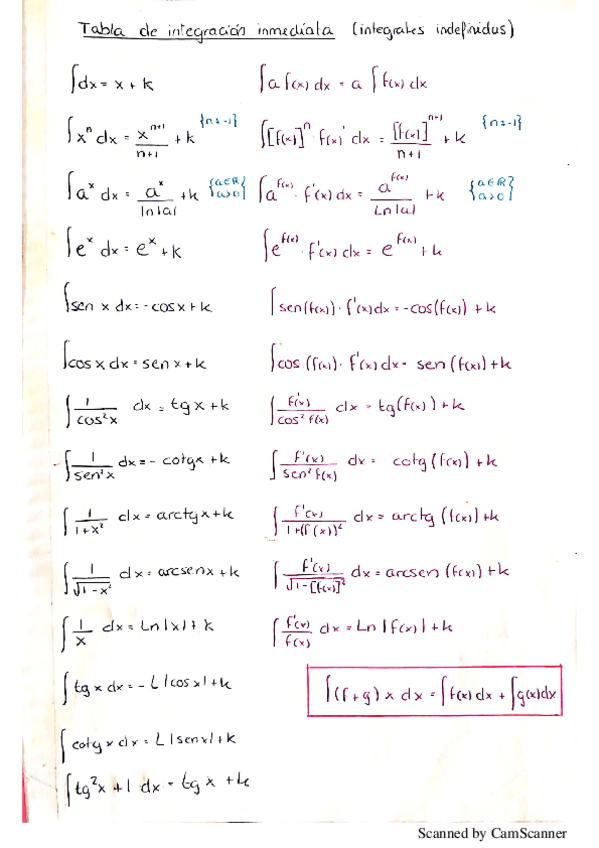 Tabla de integración inmediata (integrales indefinidas)
∫dx = x + k ∫a f(x) dx = a ∫f(x) dx
∫xⁿ dx = xⁿ⁺¹/(n+1) + k {n=-1} ∫[f(x)]ⁿ · f(x)' dx = [f(x)]ⁿ⁺¹/(n+1) + k {n=-1}
∫aˣ dx = aˣ/ln|a| + k {a∈R a>0} ∫a^f(x) · f'(x) dx = a^f(x)/Ln|a| + k {a∈R a>0}
∫eˣ dx = eˣ + k ∫e^f(x) · f'(x) dx = e^f(x) + k
∫sen x dx = -cos x + k ∫sen(f(x)) · f'(x) dx = -cos(f(x)) + k
∫cos x dx = sen x + k ∫cos (f(x)) · f'(x) dx = sen (f(x)) + k
∫1/cos²x dx = tg x + k ∫f'(x)/cos² f(x) dx = tg(f(x)) + k
∫1/sen²x dx = - cotgx + k ∫f'(x)/sen² f(x) dx = cotg (f(x)) + k
∫1/(1+x²) dx = arctg x + k ∫f'(x)/(1+(f(x))²) dx = arctg (f(x)) + k
∫1/√(1-x²) dx = arcsenx + k ∫f'(x)/√(1-[f(x)]²) dx = arcsen (f(x)) + k
∫1/x dx = Ln|x| + k ∫f'(x)/f(x) dx = Ln |f(x)| + k
∫tg x dx = - L|cos x| + k ∫(f+g) x dx = ∫f(x) dx + ∫g(x)dx
∫cotg x dx = L|senx| + k
∫tg²x + 1 dx = tg x + k
Scanned by CamScanner